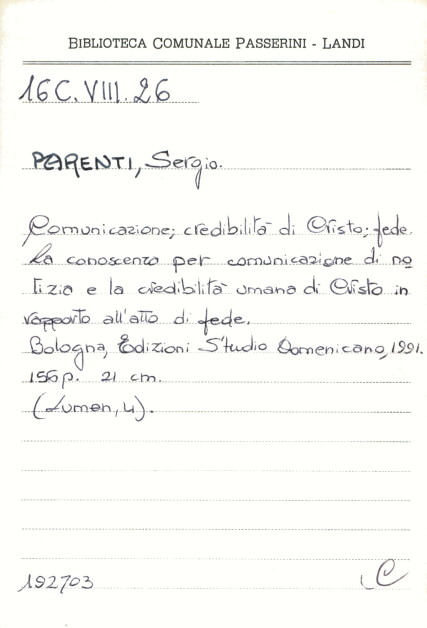 BIBLIOTECA COMUNALE PASSERINI - LANDI
16 C. VIII. 26
PARENTI, Sergio.
Comunicazione; credibilità di Cristo; fede.
La conoscenza per comunicazione di no
tizia e la credibilità umana di Cristo in
rapporto all'atto di fede.
Bologna, Edizioni Studio Domenicano, 1991.
156 p. 21 cm.
(Lumen, 4).
192703
C